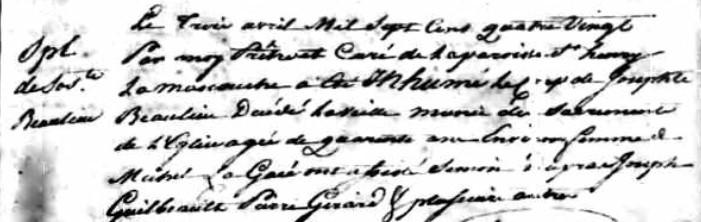 Le trois avril Mil Sept Cent quatre Vingt
Spl. Par moy Prêtre et Curé de La paroisse St henry
de Jos.te La mascouche a été Inhumé le Corp de Josephte
Beaulieu Beaulieu Décédé la veille munie de Sacrement
de L'Eglise agée de quarante ans Environ femme de
Michel La Gacé ont assisté Simon Joseph
Guilbeault Pierre Girard & plusieurs autres